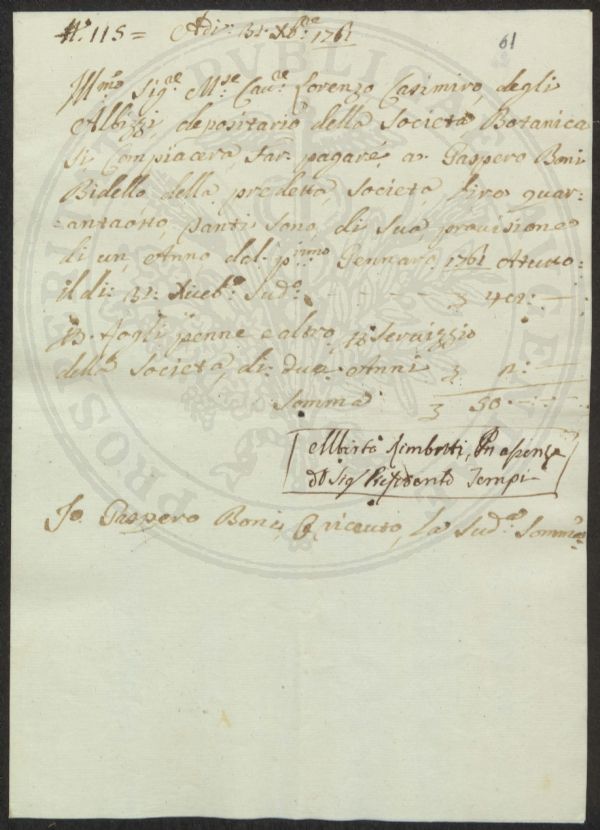 N.º 115 = Adi: 31. Xbre 1761
61
Illmo Sigre Mse Cavre Lorenzo Casimiro, degli
Albizzi, depositario della Società Botanica
Si Compiacera, far pagare, a Gaspero Boni
Bidello della predetta, Società, Lire quar=
=antaotto, tanti sono, di Sua provisione
di un, Anno dal pmo Gennaro 1761 Atutto
il di: 31: Xiceb.e Sud.o - - - 48: —
fogli penne e altro, p Servizzio
della Società, di: dua: Anni 2: —
Somma 50 - : -
Alberto Rimbotti, In assenza
del Sig Presidente Tempi
Io Gaspero Boni, O, riceuto, La Sud.a Somma
PROSPERITATI PUBLICAE AUGENDAE